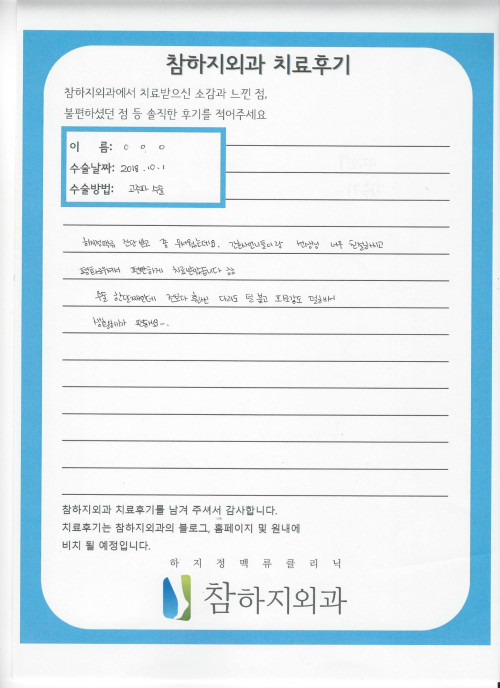 참하지외과 치료후기
참하지외과에서 치료받으신 소감과 느낀 점,
불편하셨던 점 등 솔직한 후기를 적어주세요
이 름: ㅇ ㅇ ㅇ
수술날짜: 2018.10.1
수술방법: 고주파 수술
하지정맥류 진단 받고 좀 무서웠는데요. 간호사언니들이랑 선생님 너무 친절하시고
편하게 치료받았습니다
수술 한달째인데 전보다 훨씬 다리도 덜 붓고 피로감도 덜해서
생활하기가 편해요~.
참하지외과 치료후기를 남겨 주셔서 감사합니다.
치료후기는 참하지외과의 블로그, 홈페이지 및 원내에
비치 될 예정입니다.
하지정맥류클리닉
참하지외과